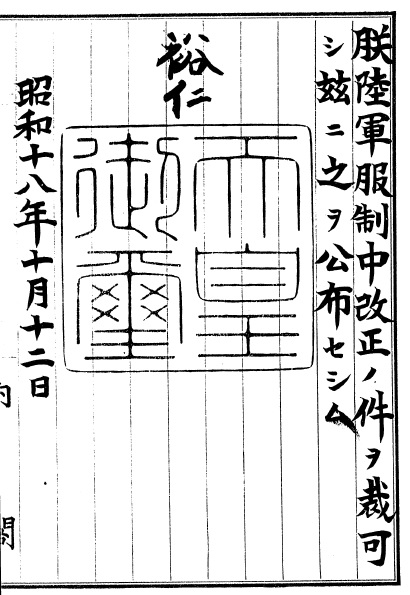 朕陸軍服制中改正ノ件ヲ裁可
シ玆ニ之ヲ公布セシム
裕仁
天皇
御璽
昭和十八年十月十二日
内
閣